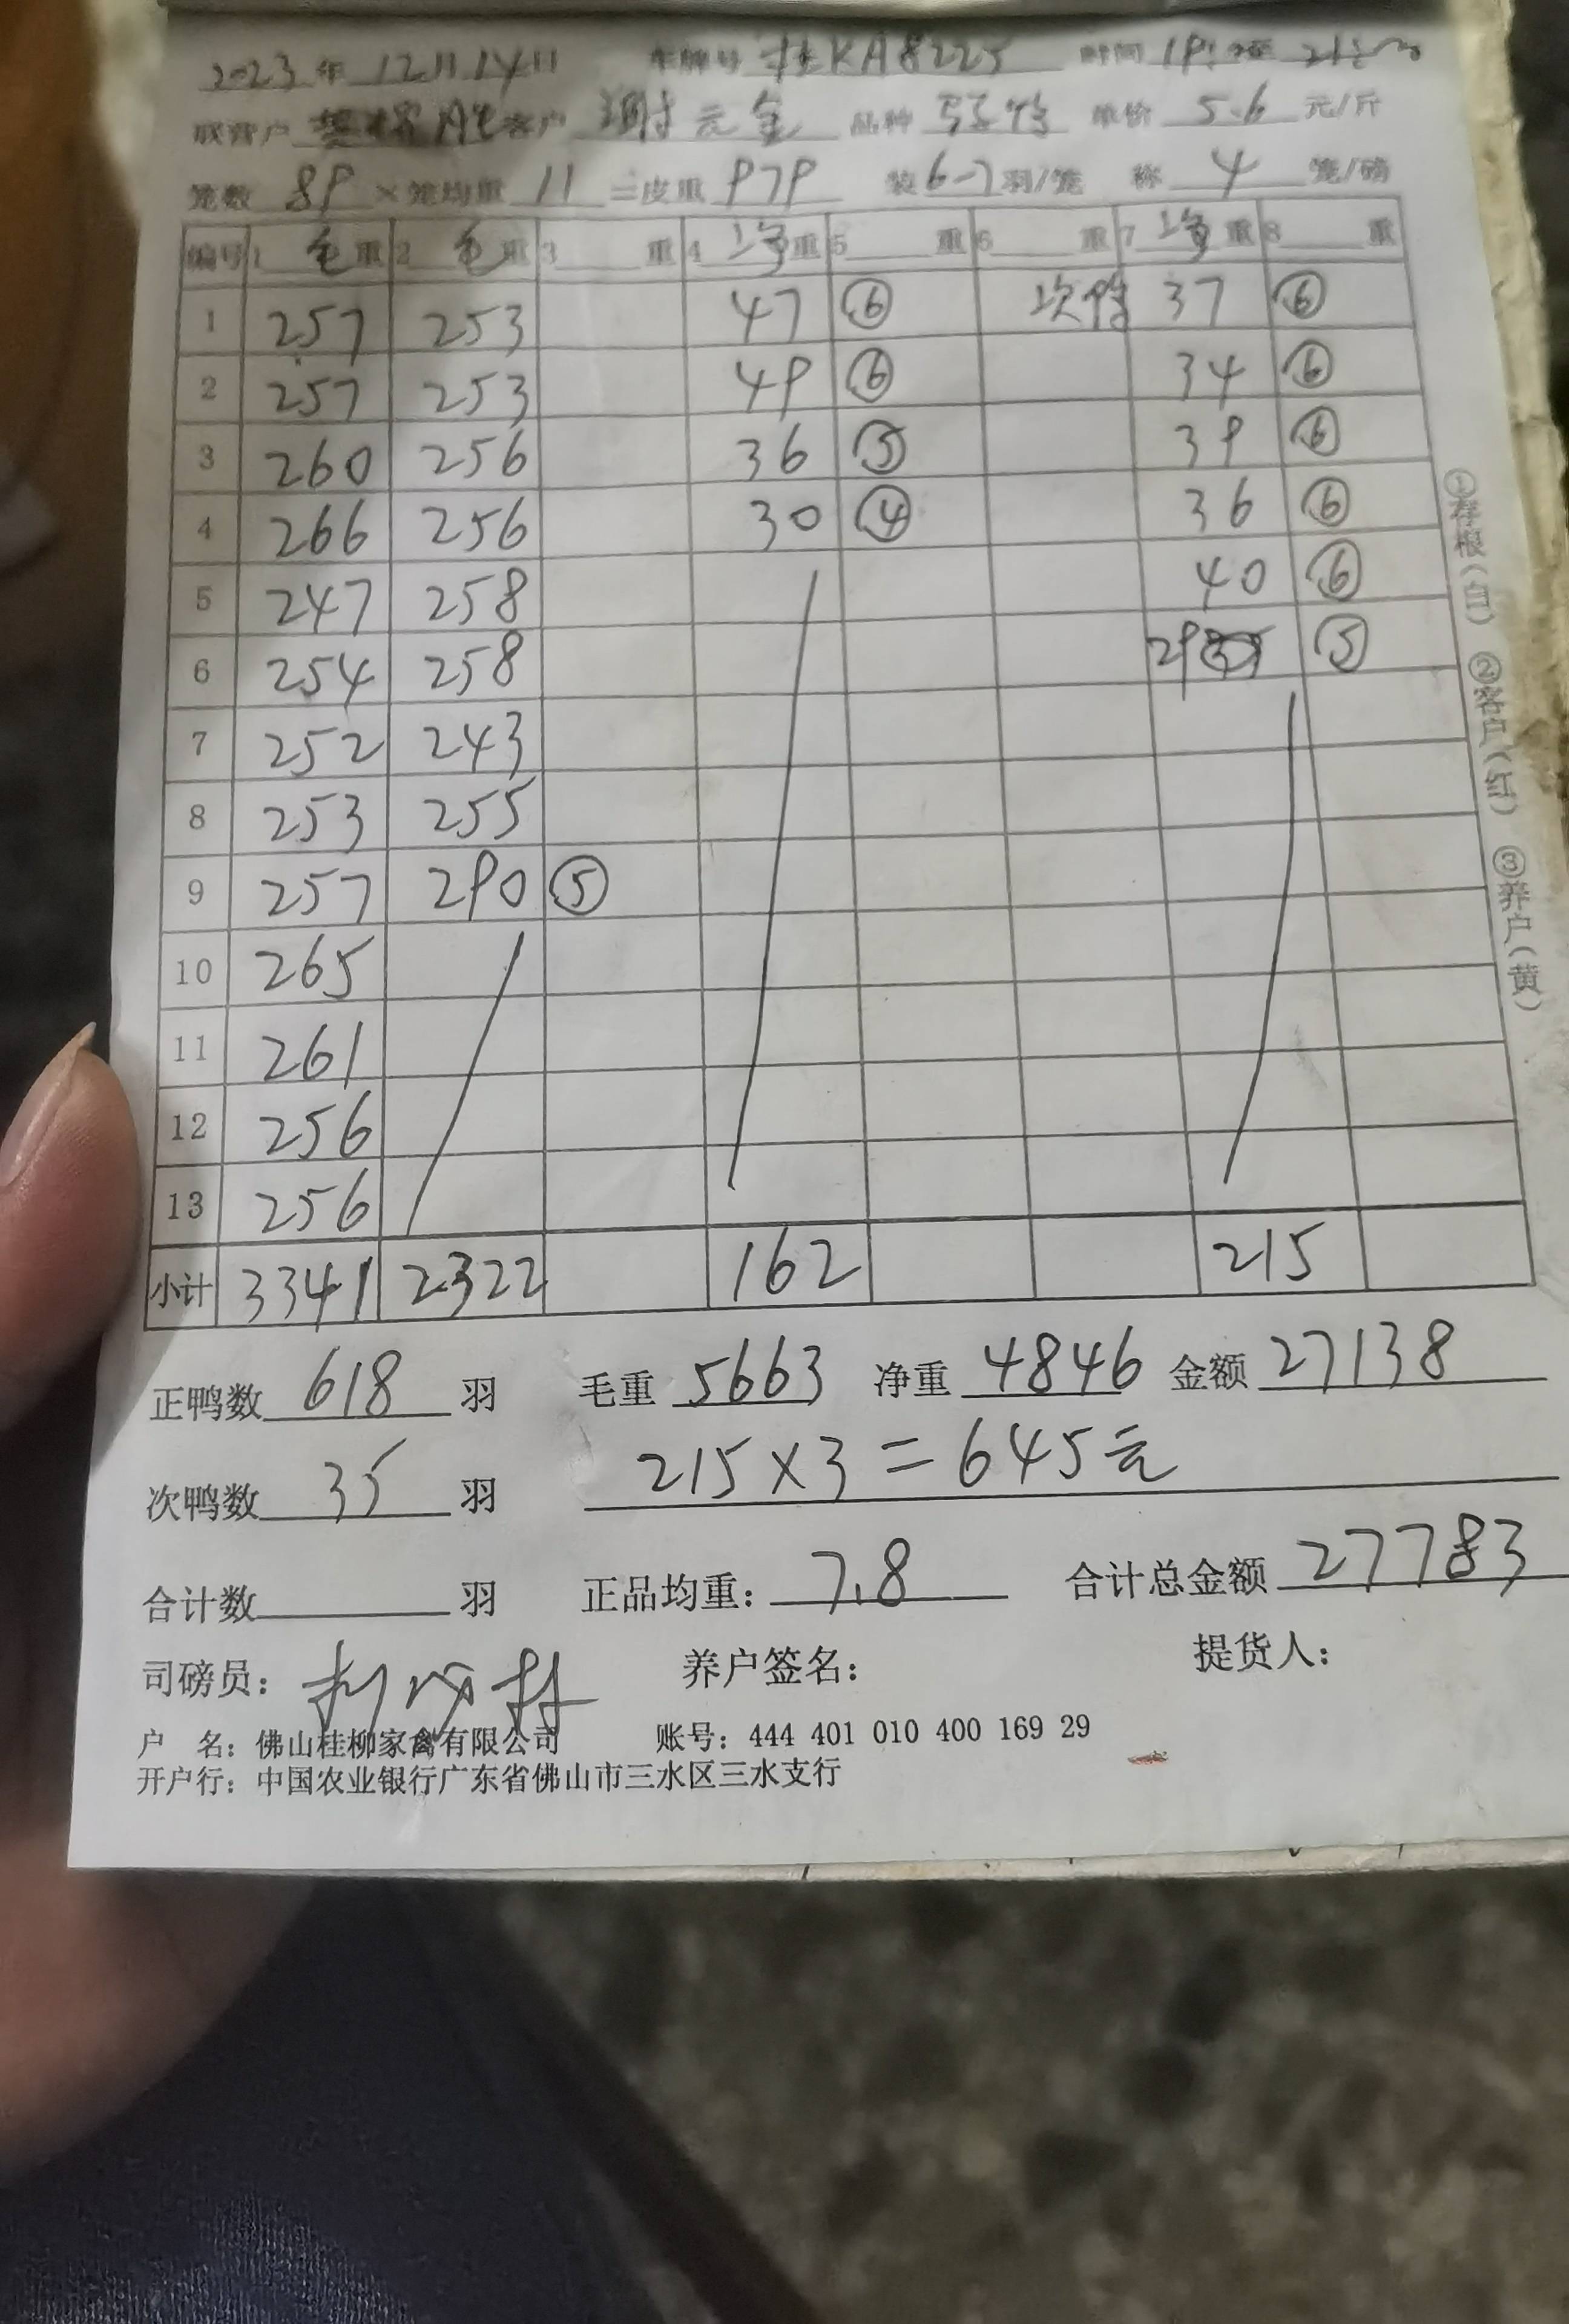 2023年 12月14日 车牌号 桂KA8225 时间
联营户 客户 谢元金 品种 单价 5.6 元/斤
笼数 89 ×笼均重 11 =皮重 979 装6-7羽/笼 称 4 笼/磅
编号 1 毛重 2 毛重 3 重 4 净重 5 重 6 重 7 净重 8 重
1 257 253 47 ⑥ 次鸭 37 ⑥
2 257 253 49 ⑥ 34 ⑥
3 260 256 36 ⑤ 39 ⑥
4 266 256 30 ④ 36 ⑥
5 247 258 40 ⑥
6 254 258 29 ⑤
7 252 243
8 253 255
9 257 290 ⑤
10 265
11 261
12 256
13 256
小计 3341 2322 162 215
正鸭数 618 羽 毛重 5663 净重 4846 金额 27138
次鸭数 35 羽 215×3=645元
合计数 羽 正品均重: 7.8 合计总金额 27783
司磅员: 养户签名: 提货人:
户 名: 佛山桂柳家禽有限公司 账号: 444 401 010 400 169 29
开户行: 中国农业银行广东省佛山市三水区三水支行
①存根(白) ②客户(红) ③养户(黄)